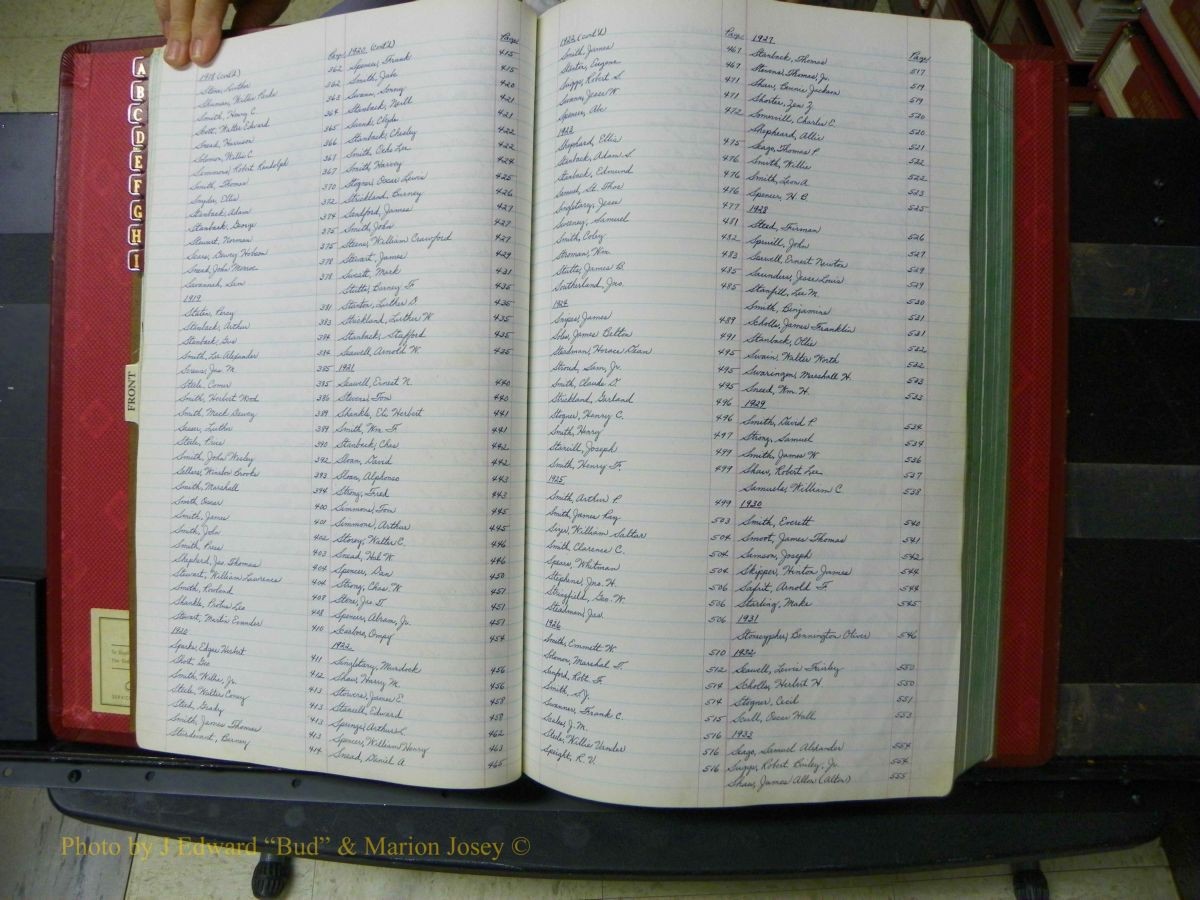 A
B
C
D
E
F
G
H
I
FRONT
1918 (cont'd)
Stone, Luther
Shuman, Willie Parks
Smith, Henry C.
Scott, Walter Edward
Snead, Harrison
Solomon, Willie C.
Simmons, Robert Randolph
Smith, Thomas
Snyder, Ellis
Stanback, Adam
Stanback, George
Stewart, Norman
Sears, Dewey Hobson
Snead, John Monroe
Savannah, Sam
1919
Stanback, Arthur
Stanback, Gus
Smith, Lee Alexander
Steele, Comer
Smith, Herbert Wood
Smith, Mack Dewey
Steele, Price
Smith, John Wesley
Sellers, Winslow Brooks
Smith, Marshall
Smith, Oscar
Smith, James
Smith, John
Smith, Press
Shepherd, Jas. Thomas
Stewart, William Lawrence
Smith, Rowland
Shankle, Protus Lee
Stewart, Martin Evander
1920
Sparks, Edgar Herbert
Short, Geo.
Smith, Willie, Jr.
Steele, Walter Coney
Steed, Grady
Smith, James Thomas
Sturdivant, Barney
Page 1920 (cont'd) Page
362 Spencer, Frank 415
362 Smith, Jake 415
363 Swann, Soney 420
364 Stanback, Nevill 421
365 Swink, Clyde 421
366 Stanback, Chesley 422
367 Smith, Ocie Lee 422
367 Smith, Harvey 424
370 Stogner, Oscar Lewis 425
372 Strickland, Burney 426
374 Sandford, James 427
375 Smith, John 427
375 Steen, William Crawford 427
378 Stewart, James 429
378 Sweatt, Mark 431
Stutts, Barney F. 435
381 Staton, Luther D. 435
383 Strickland, Luther W. 435
384 Stanback, Stafford 435
384 Seawell, Arnold W. 435
385 1921
385 Seawell, Ernest N. 440
386 Stevens, Tom 440
389 Shankle, Eli Herbert 441
389 Smith, Wm. F. 441
390 Stanback, Chas. 442
392 Sloan, David 442
393 Sloan, Alphonso 443
394 Strong, Fred 443
400 Simmons, Tom 445
401 Simmons, Arthur 445
402 Storey, Walter C. 446
403 Snead, Hal W. 446
404 Spencer, Dan 450
404 Strong, Chas. W. 451
408 Stone, Jas. D. 451
408 Spencer, Abram, Jr. 451
410 Scarboro, Ompy 454
1922
411 Singletary, Murdock 456
412 Shaw, Harry M. 456
413 Stowers, James E. 458
413 Stancill, Edward 458
413 Springs, Arthur L. 462
413 Spencer, William Henry 463
414 Snead, Daniel A. 465
1922 (cont'd)
Smith, James
Slater, Eugene
Suggs, Robert S.
Swann, Jesse W.
Spencer, Abe
1923
Shephard, Ellis
Stanback, Adam S.
Stanback, Edmund
Samuel, St. Thos.
Singletary, Jesse
Sweeney, Samuel
Smith, Coley
Stroman, Wm.
Stutts, James B.
Southerland, Jno.
1924
Snipes, James
Soles, James Belton
Steadman, Horace Dean
Stroud, Sam, Jr.
Smith, Claude D.
Strickland, Garland
Stogner, Henry C.
Smith, Henry
Starvill, Joseph
Smith, Henry F.
1925
Smith, Arthur P.
Smith, James Ray
Sizer, William Salter
Smith, Clarence C.
Spears, Whitman
Stephens, Jno. H.
Stringfield, Geo. W.
Steadman, Jas.
1926
Smith, Emmett W.
Solomon, Marshal T.
Sanford, Robt. F.
Smith, S. J.
Swanner, Frank C.
Scales, J. M.
Steele, Willie Vander
Speight, R. V.
Page 1927 Page
467 Stanback, Thomas 517
467 Stevens, Thomas, Jr. 519
471 Shaw, Bennie Jackson 519
471 Shorter, Zen Z. 520
472 Somerville, Charles E. 520
Shepheard, Allie 521
475 Seago, Thomas P. 522
476 Smith, Willie 522
476 Smith, Leon A. 523
476 Spencer, H. B. 525
477 1928
481 Steed, Furman 526
482 Spruill, John 527
483 Seawell, Ernest Newton 529
485 Saunders, Jesse Louis 529
485 Stanfill, Lee M. 530
Smith, Benjamine 531
489 Scholls, James Franklin 531
491 Stanback, Ollie 532
495 Swain, Walter Worth 532
495 Swaringen, Marshall H. 533
495 Sneed, Wm. H. 533
496 1929
496 Smith, David P. 534
497 Strong, Samuel 534
499 Smith, James W. 536
499 Shaw, Robert Lee 537
Samuels, William C. 538
499 1930
503 Smith, Everett 540
504 Smoot, James Thomas 541
504 Samson, Joseph 542
504 Skipper, Hinton James 544
506 Safrit, Arnold F. 544
506 Starling, Make 545
506 1931
Stonecypher, Bennington Oliver 546
510 1932
512 Seawell, Lewis Fairley 550
514 Scholls, Herbert H. 550
514 Stogner, Cecil 551
515 Scull, Oscar Hall 553
516 1933
516 Seago, Samuel Alexander 554
516 Suggs, Robert Bailey, Jr. 554
Shaw, James Allen (Alton) 555
Photo by J Edward “Bud” & Marion Josey ©